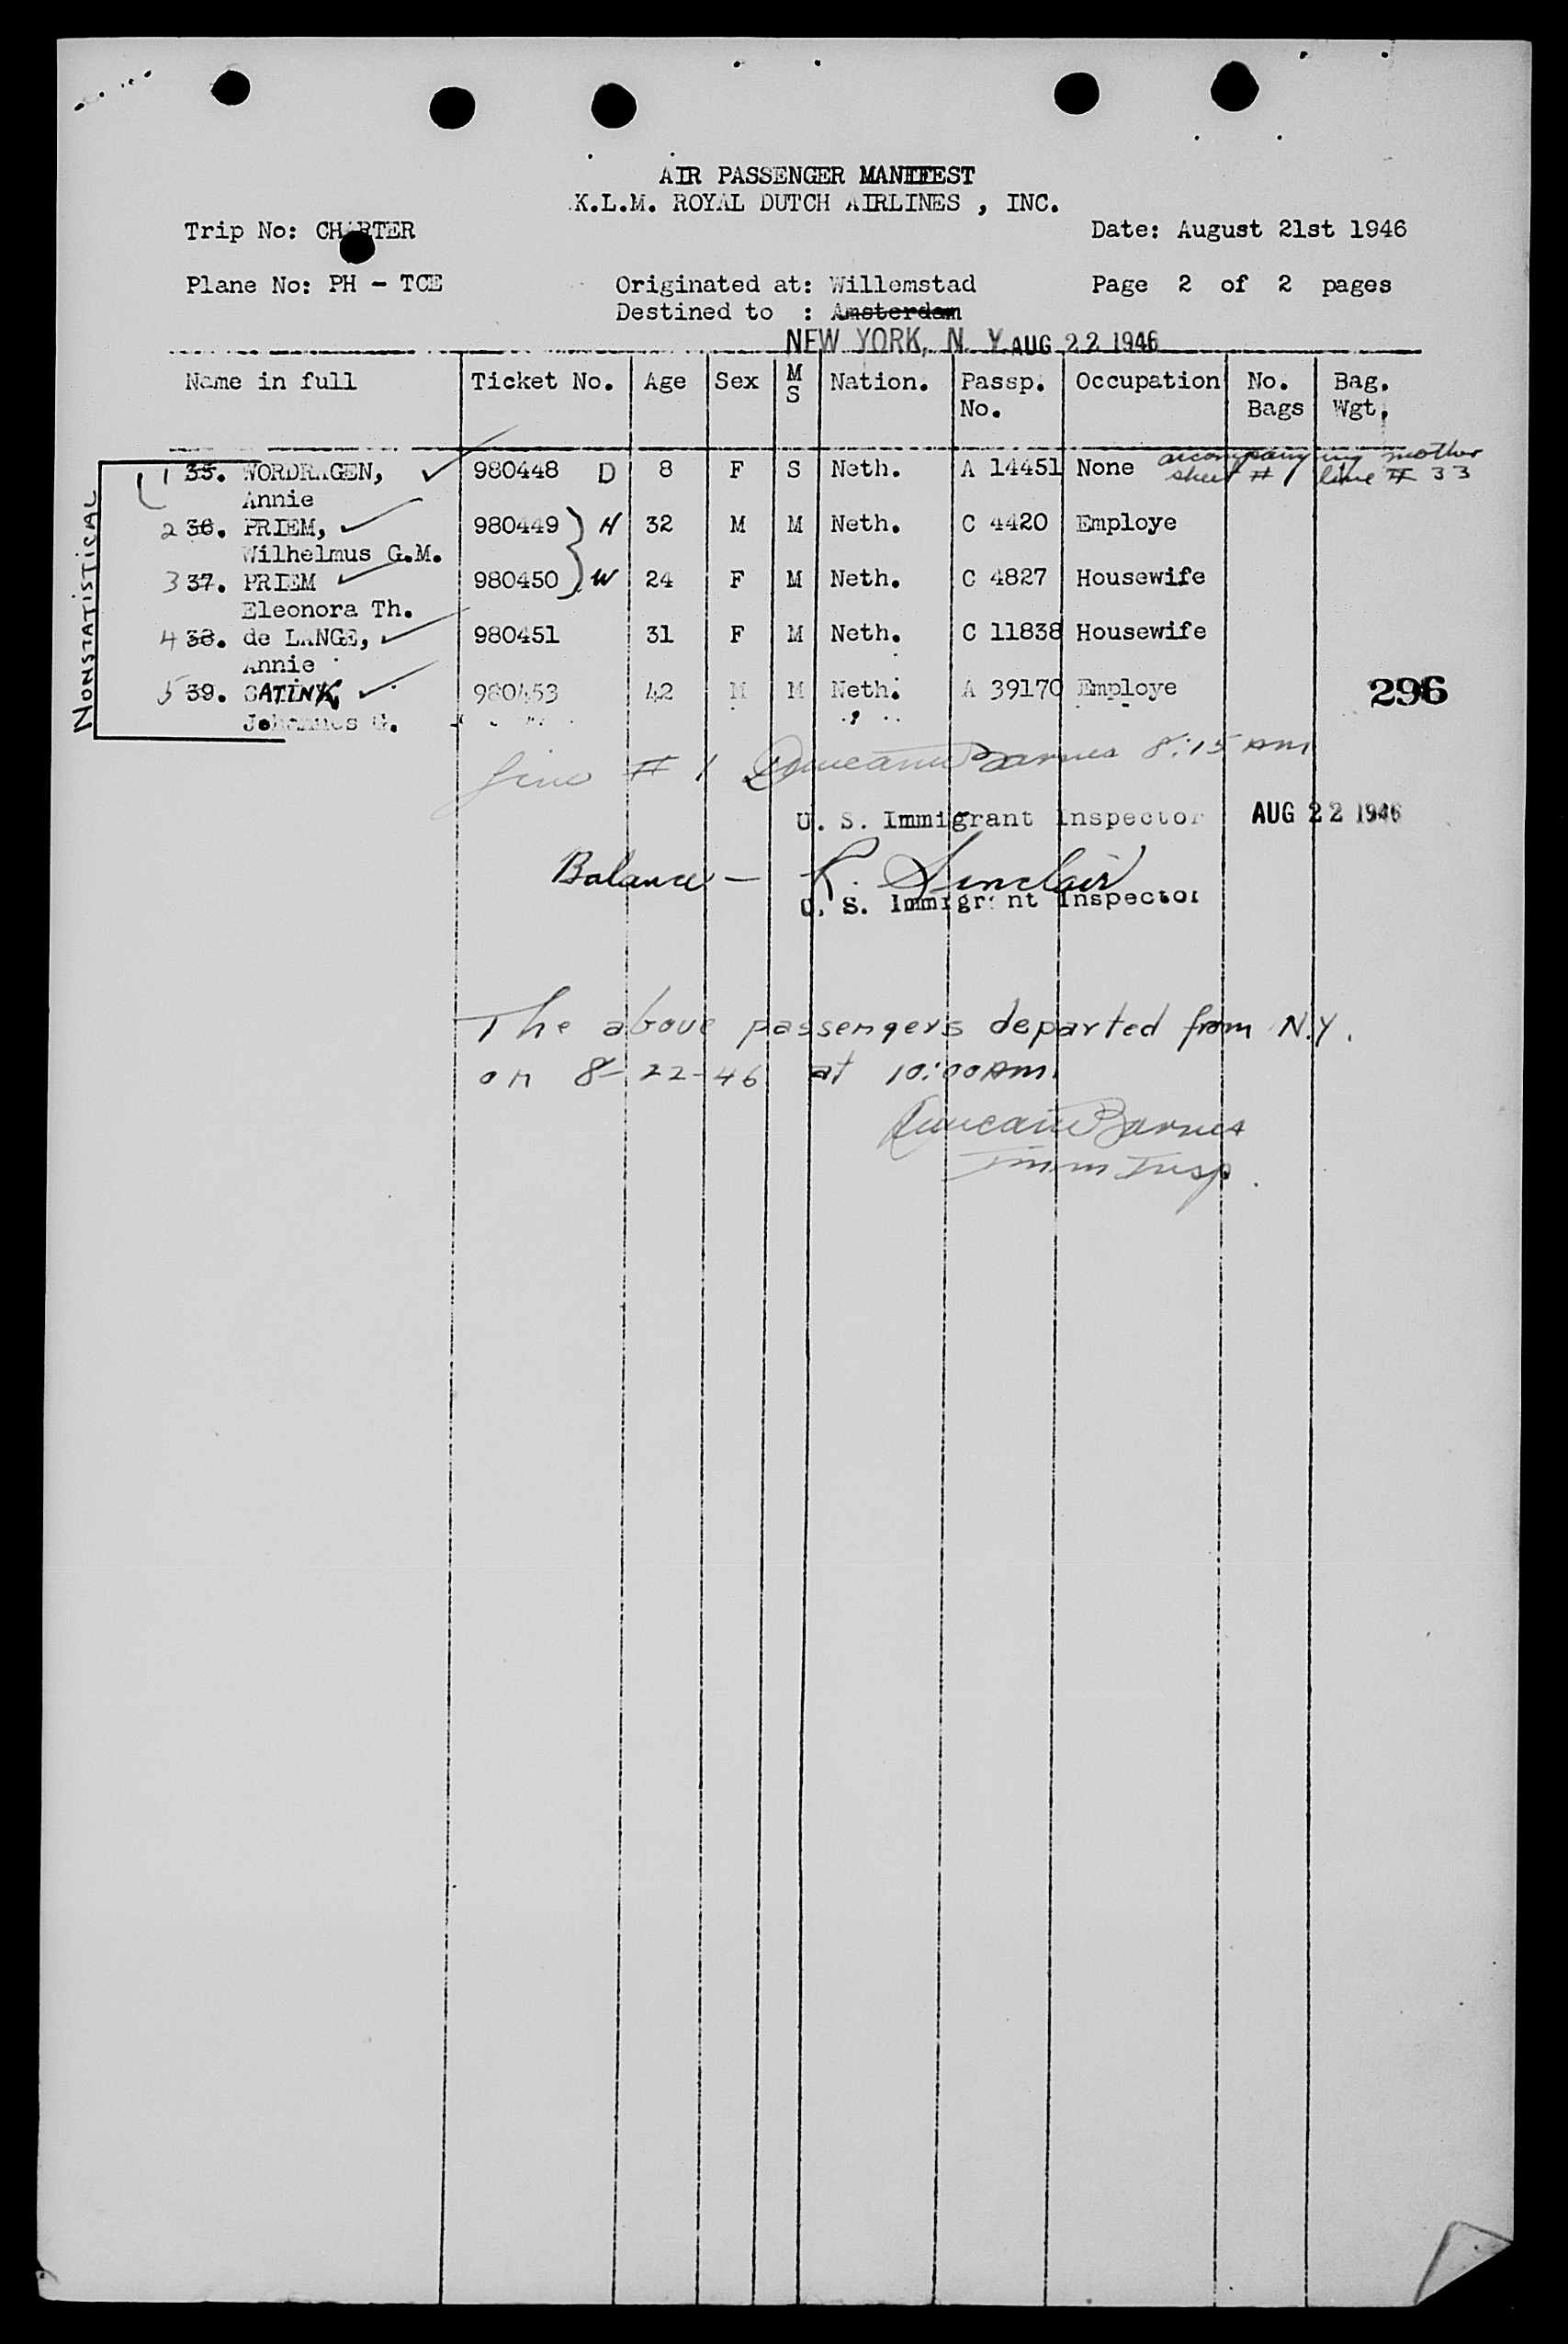 AIR PASSENGER MANIFEST
K.L.M. ROYAL DUTCH AIRLINES , INC.
Trip No: CHARTER Date: August 21st 1946
Plane No: PH - TCE Originated at: Willemstad Page 2 of 2 pages
Destined to : Amsterdam
NEW YORK, N. Y. AUG 22 1946
Name in full Ticket No. Age Sex M S Nation. Passp. No. Occupation No. Bags Bag. Wgt.
NONSTATISTICAL
1 35. WORDRAGEN, 980448 D 8 F S Neth. A 14451 None accompanying mother
Annie sheet # 1 line # 33
2 36. PRIEM, 980449 H 32 M M Neth. C 4420 Employe
Wilhelmus G.M.
3 37. PRIEM 980450 W 24 F M Neth. C 4827 Housewife
Eleonora Th.
4 38. de LANGE, 980451 31 F M Neth. C 11838 Housewife
Annie
5 39. SATINK, 980453 42 M M Neth. A 39170 Employe
Johannes G.
296
Line # 1 Duncan Barnes 8:15 AM
U. S. Immigrant Inspector AUG 22 1946
Balance - R. Sinclair
U. S. Immigrant Inspector
The above passengers departed from N.Y.
on 8-22-46 at 10:00 AM.
Duncan Barnes
Imm Insp.